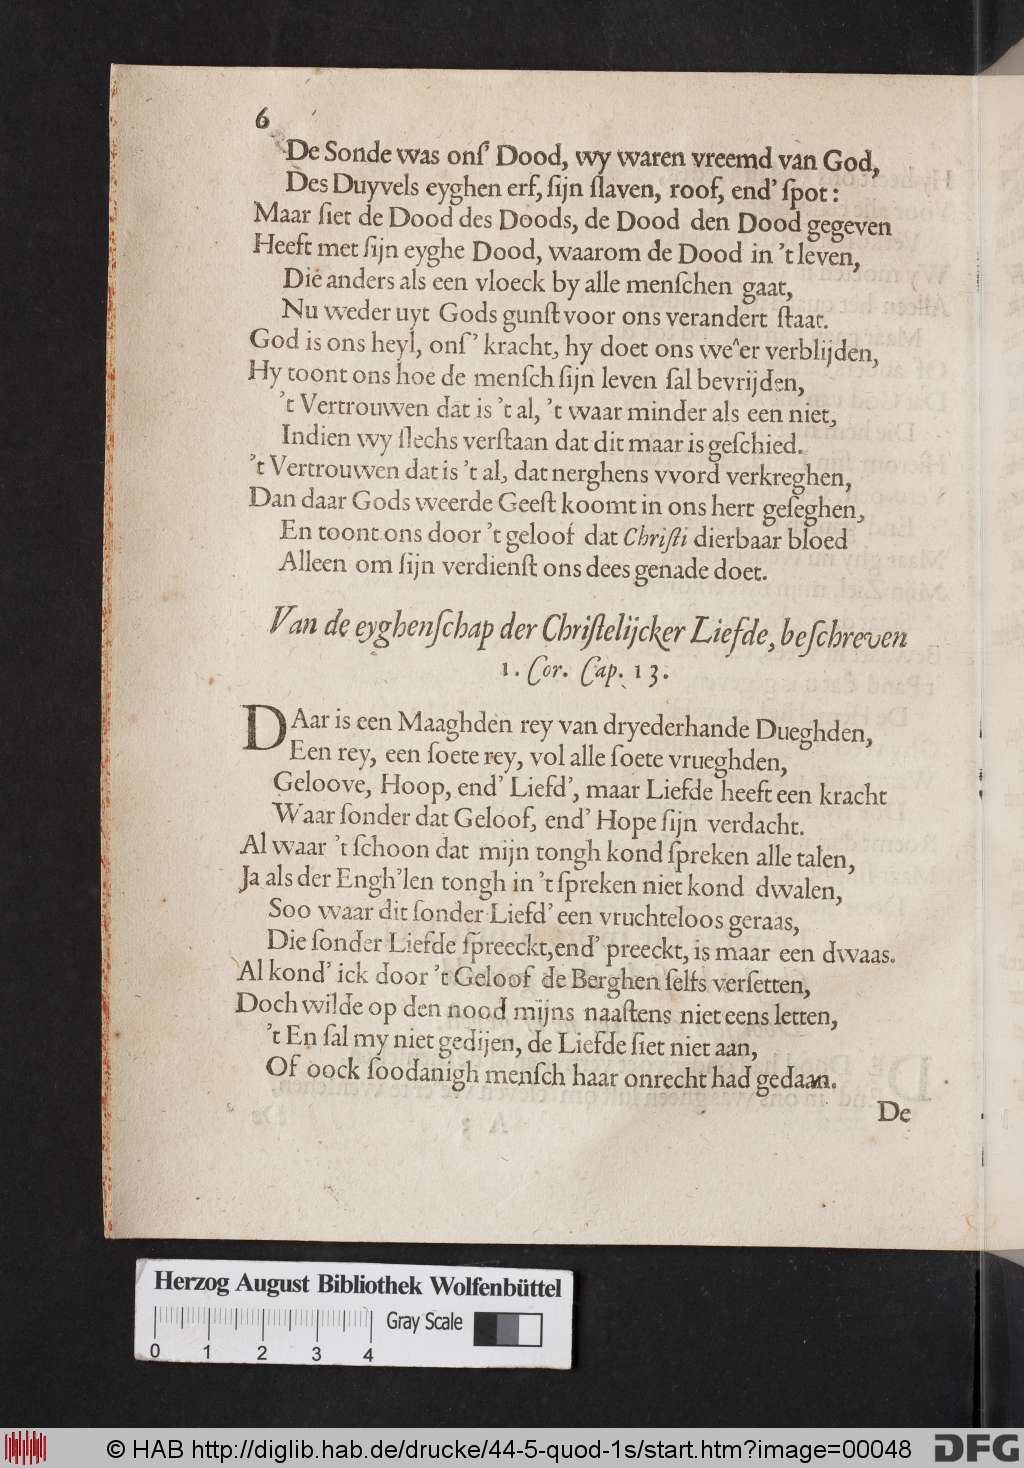 6
De Sonde was onſ’ Dood, wy waren vreemd van God,
Des Duyvels eyghen erf, ſijn ſlaven, roof, end’ ſpot:
Maar ſiet de Dood des Doods, de Dood den Dood gegeven
Heeft met ſijn eyghe Dood, waarom de Dood in ’t leven,
Die anders als een vloeck by alle menſchen gaat,
Nu weder uyt Gods gunſt voor ons verandert ſtaat.
God is ons heyl, onſ’ kracht, hy doet ons we^er verblijden,
Hy toont ons hoe de menſch ſijn leven ſal bevrijden,
’t Vertrouwen dat is ’t al, ’t waar minder als een niet,
Indien wy ſlechs verſtaan dat dit maar is geſchied.
’t Vertrouwen dat is ’t al, dat nerghens vvord verkreghen,
Dan daar Gods weerde Geeſt koomt in ons hert geſeghen,
En toont ons door ’t geloof dat Chriſti dierbaar bloed
Alleen om ſijn verdienſt ons dees genade doet.
Van de eyghenſchap der Chriſtelijcker Liefde, beſchreven
1. Cor. Cap. 13.
DAar is een Maaghden rey van dryederhande Dueghden,
Een rey, een ſoete rey, vol alle ſoete vrueghden,
Geloove, Hoop, end’ Liefd’, maar Liefde heeft een kracht
Waar ſonder dat Geloof, end’ Hope ſijn verdacht.
Al waar ’t ſchoon dat mijn tongh kond ſpreken alle talen,
Ja als der Engh’len tongh in ’t ſpreken niet kond dwalen,
Soo waar dit ſonder Liefd’ een vruchteloos geraas,
Die ſonder Liefde ſpreeckt, end’ preeckt, is maar een dwaas.
Al kond’ ick door ’t Geloof de Berghen ſelfs verſetten,
Doch wilde op den nood mijns naaſtens niet eens letten,
’t En ſal my niet gedijen, de Liefde ſiet niet aan,
Of oock ſoodanigh menſch haar onrecht had gedaan.
De
Herzog August Bibliothek Wolfenbüttel
Gray Scale
0 1 2 3 4
© HAB http://diglib.hab.de/drucke/44-5-quod-1s/start.htm?image=00048
DFG